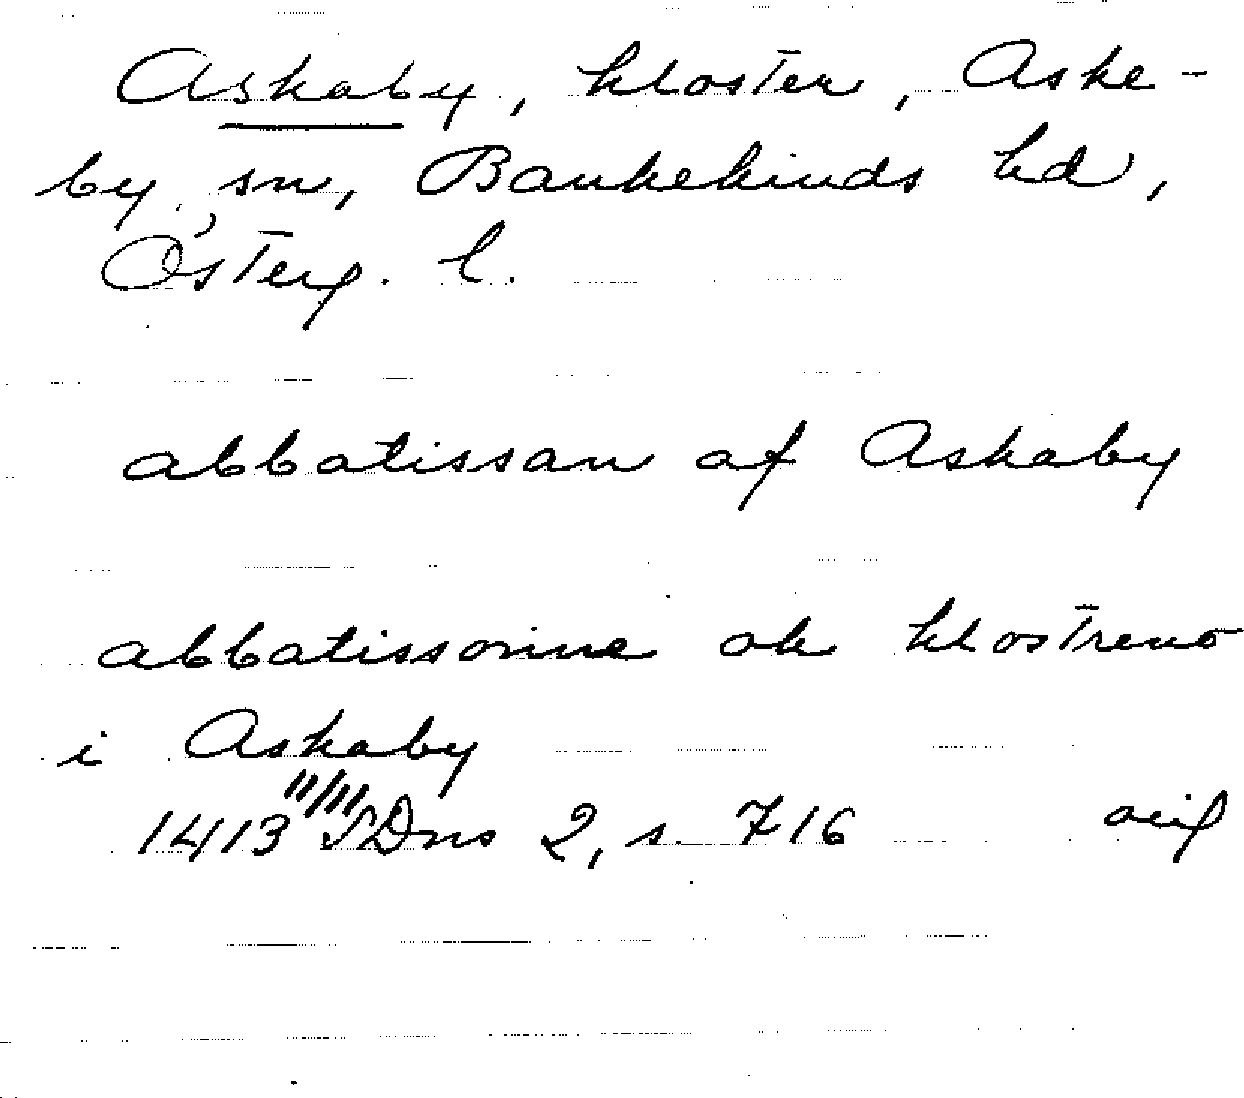 Askaby, kloster, Aske-
by sn, Bankekinds hd,
Österg. l.
abbatissan af Askaby
abbatissonne ok klostreno
i Askaby
1413 11/11 SDns 2, s. 716